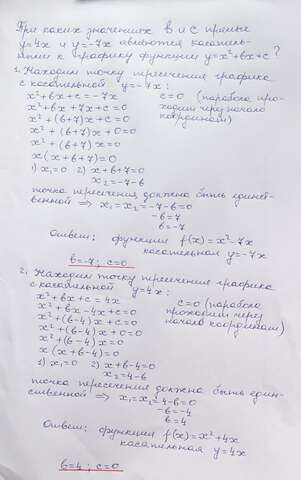 При каких значениях в и с прямые
y=4x и y=-7x являются касатель-
ными к графику функции y=x²+bx+c?
1. Находим точку пересечения графика
с касательной y=-7x:
x²+bx+c=-7x
c=0 (парабола про-
ходит через начало
координат)
x²+bx+7x+c=0
x²+(b+7)x+c=0
x²+(b+7)x+0=0
x²+(b+7)x=0
x(x+b+7)=0
1) x₁=0 2) x+b+7=0
x₂=-7-b
точка пересечения должна быть единст-
венной ⇒ x₁=x₂=-7-b=0
-b=7
b=-7
Ответ: функция f(x)=x²-7x
касательная y=-7x
b=-7; c=0
2. Находим точку пересечения графика
с касательной y=4x:
x²+bx+c=4x
c=0 (парабола
проходит через
начало координат)
x²+bx-4x+c=0
x²+(b-4)x+c=0
x²+(b-4)x+0=0
x²+(b-4)x=0
x(x+b-4)=0
1) x₁=0 2) x+b-4=0
x₂=4-b
точка пересечения должна быть един-
ственной ⇒ x₁=x₂=4-b=0
-b=-4
b=4
Ответ: функция f(x)=x²+4x
касательная y=4x
b=4; c=0